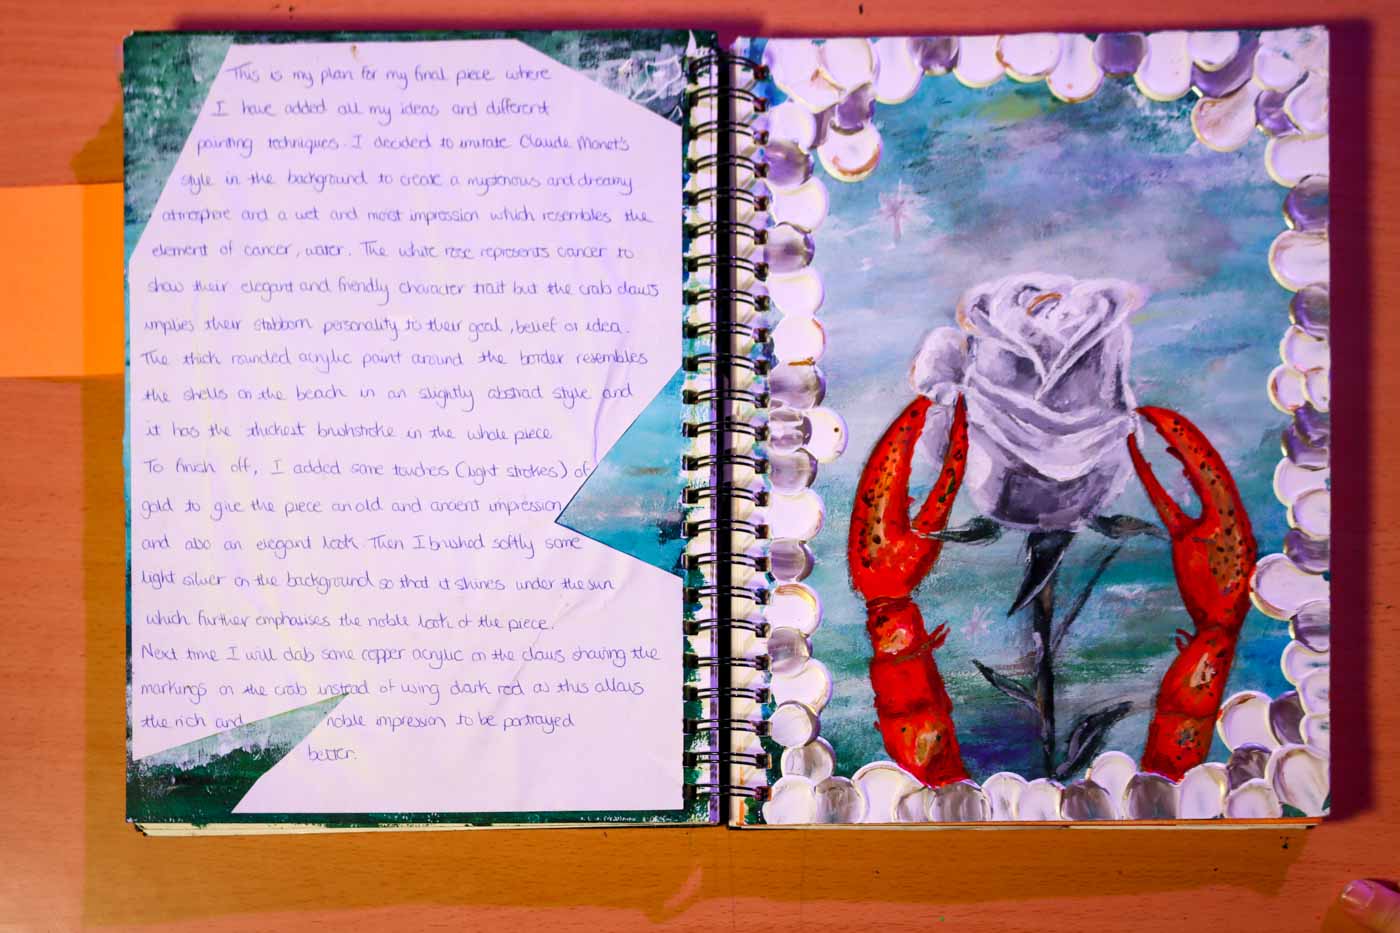 This is my plan for my final piece where
I have added all my ideas and different
painting techniques. I decided to imitate Claude Monet's
style in the background to create a mysterious and dreamy
atmosphere and a wet and moist impression which resembles the
element of cancer, water. The white rose represents cancer to
show their elegant and friendly character trait but the crab claws
implies their stubborn personality to their goal, belief or idea.
The thick rounded acrylic paint around the border resembles
the shells on the beach in an slightly abstract style and
it has the thickest brushstroke in the whole piece
To finish off, I added some touches (light strokes) of
gold to give the piece an old and ancient impression
and also an elegant look. Then I brushed softly some
light silver on the background so that it shines under the sun
which further emphasises the noble look of the piece.
Next time I will dab some copper acrylic on the claws showing the
markings on the crab instead of using dark red as this allows
the rich and noble impression to be portrayed
better.